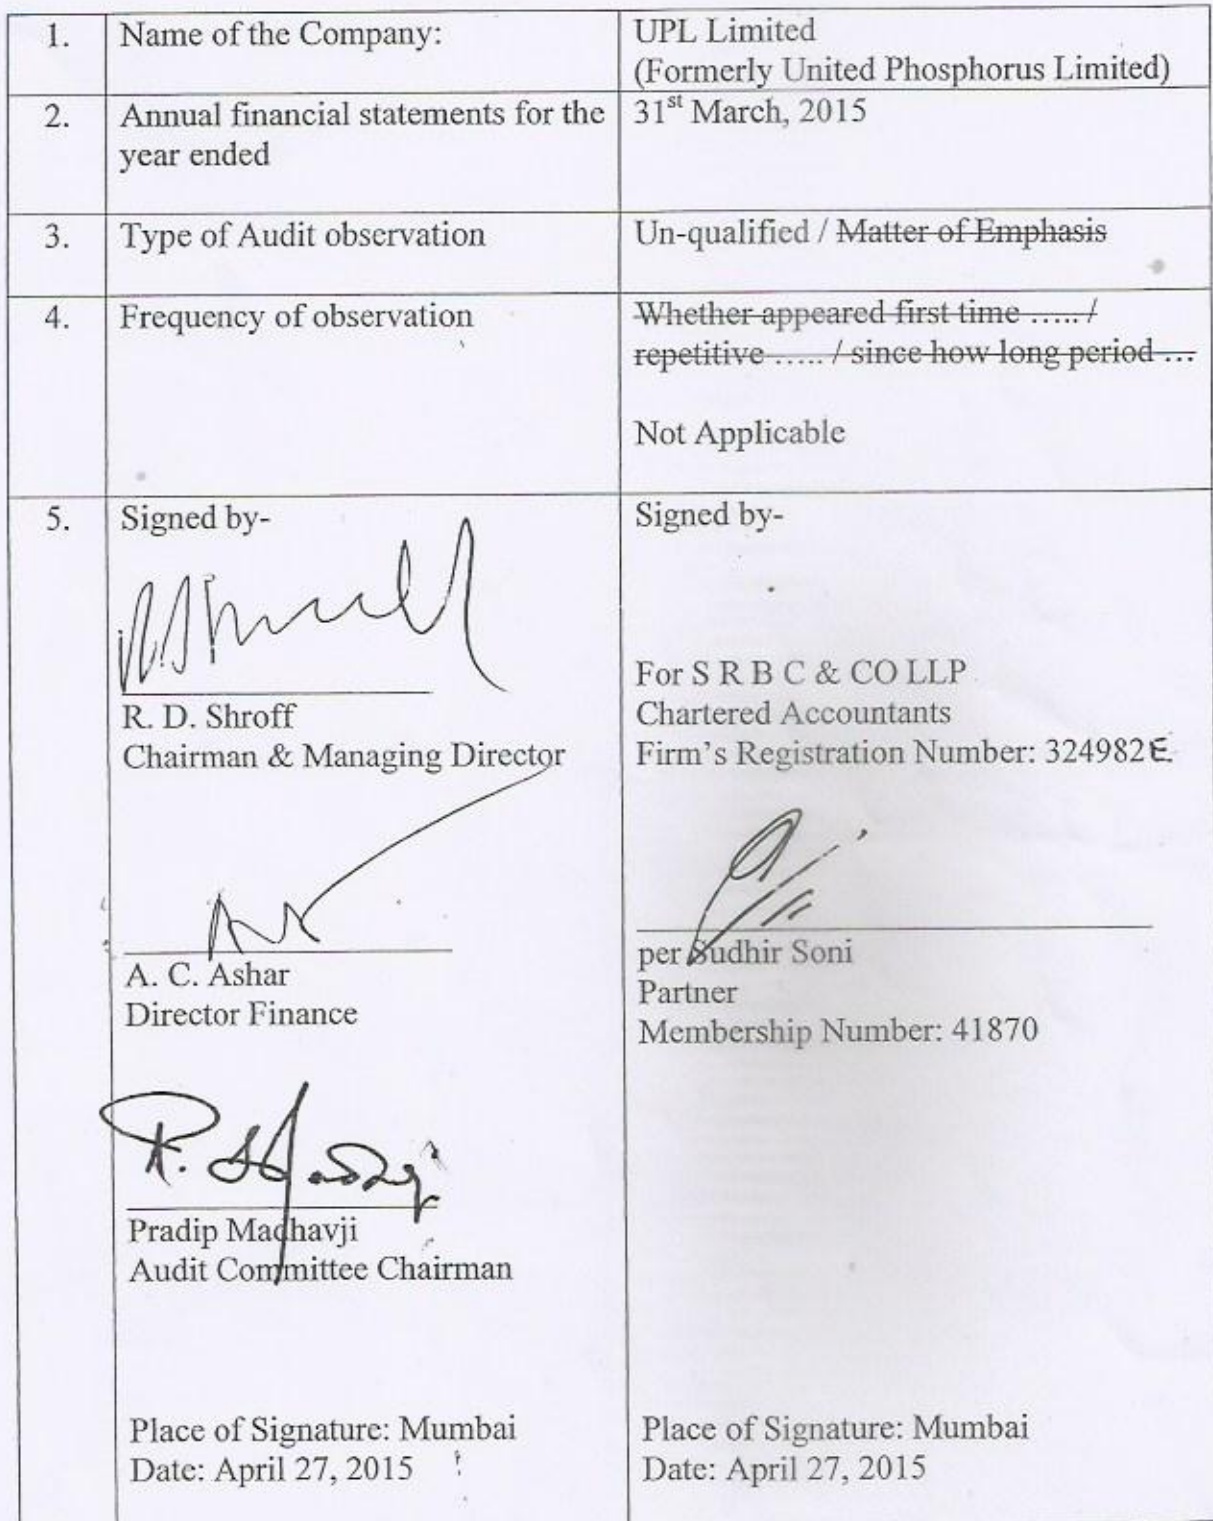 1. Name of the Company: UPL Limited
(Formerly United Phosphorus Limited)
2. Annual financial statements for the 31st March, 2015
year ended
3. Type of Audit observation Un-qualified / Matter of Emphasis
4. Frequency of observation Whether appeared first time ..... /
repetitive ..... / since how long period ...
Not Applicable
5. Signed by-
R. D. Shroff
Chairman & Managing Director
A. C. Ashar
Director Finance
Pradip Madhavji
Audit Committee Chairman
Place of Signature: Mumbai
Date: April 27, 2015
Signed by-
For S R B C & CO LLP
Chartered Accountants
Firm's Registration Number: 324982E
per Sudhir Soni
Partner
Membership Number: 41870
Place of Signature: Mumbai
Date: April 27, 2015